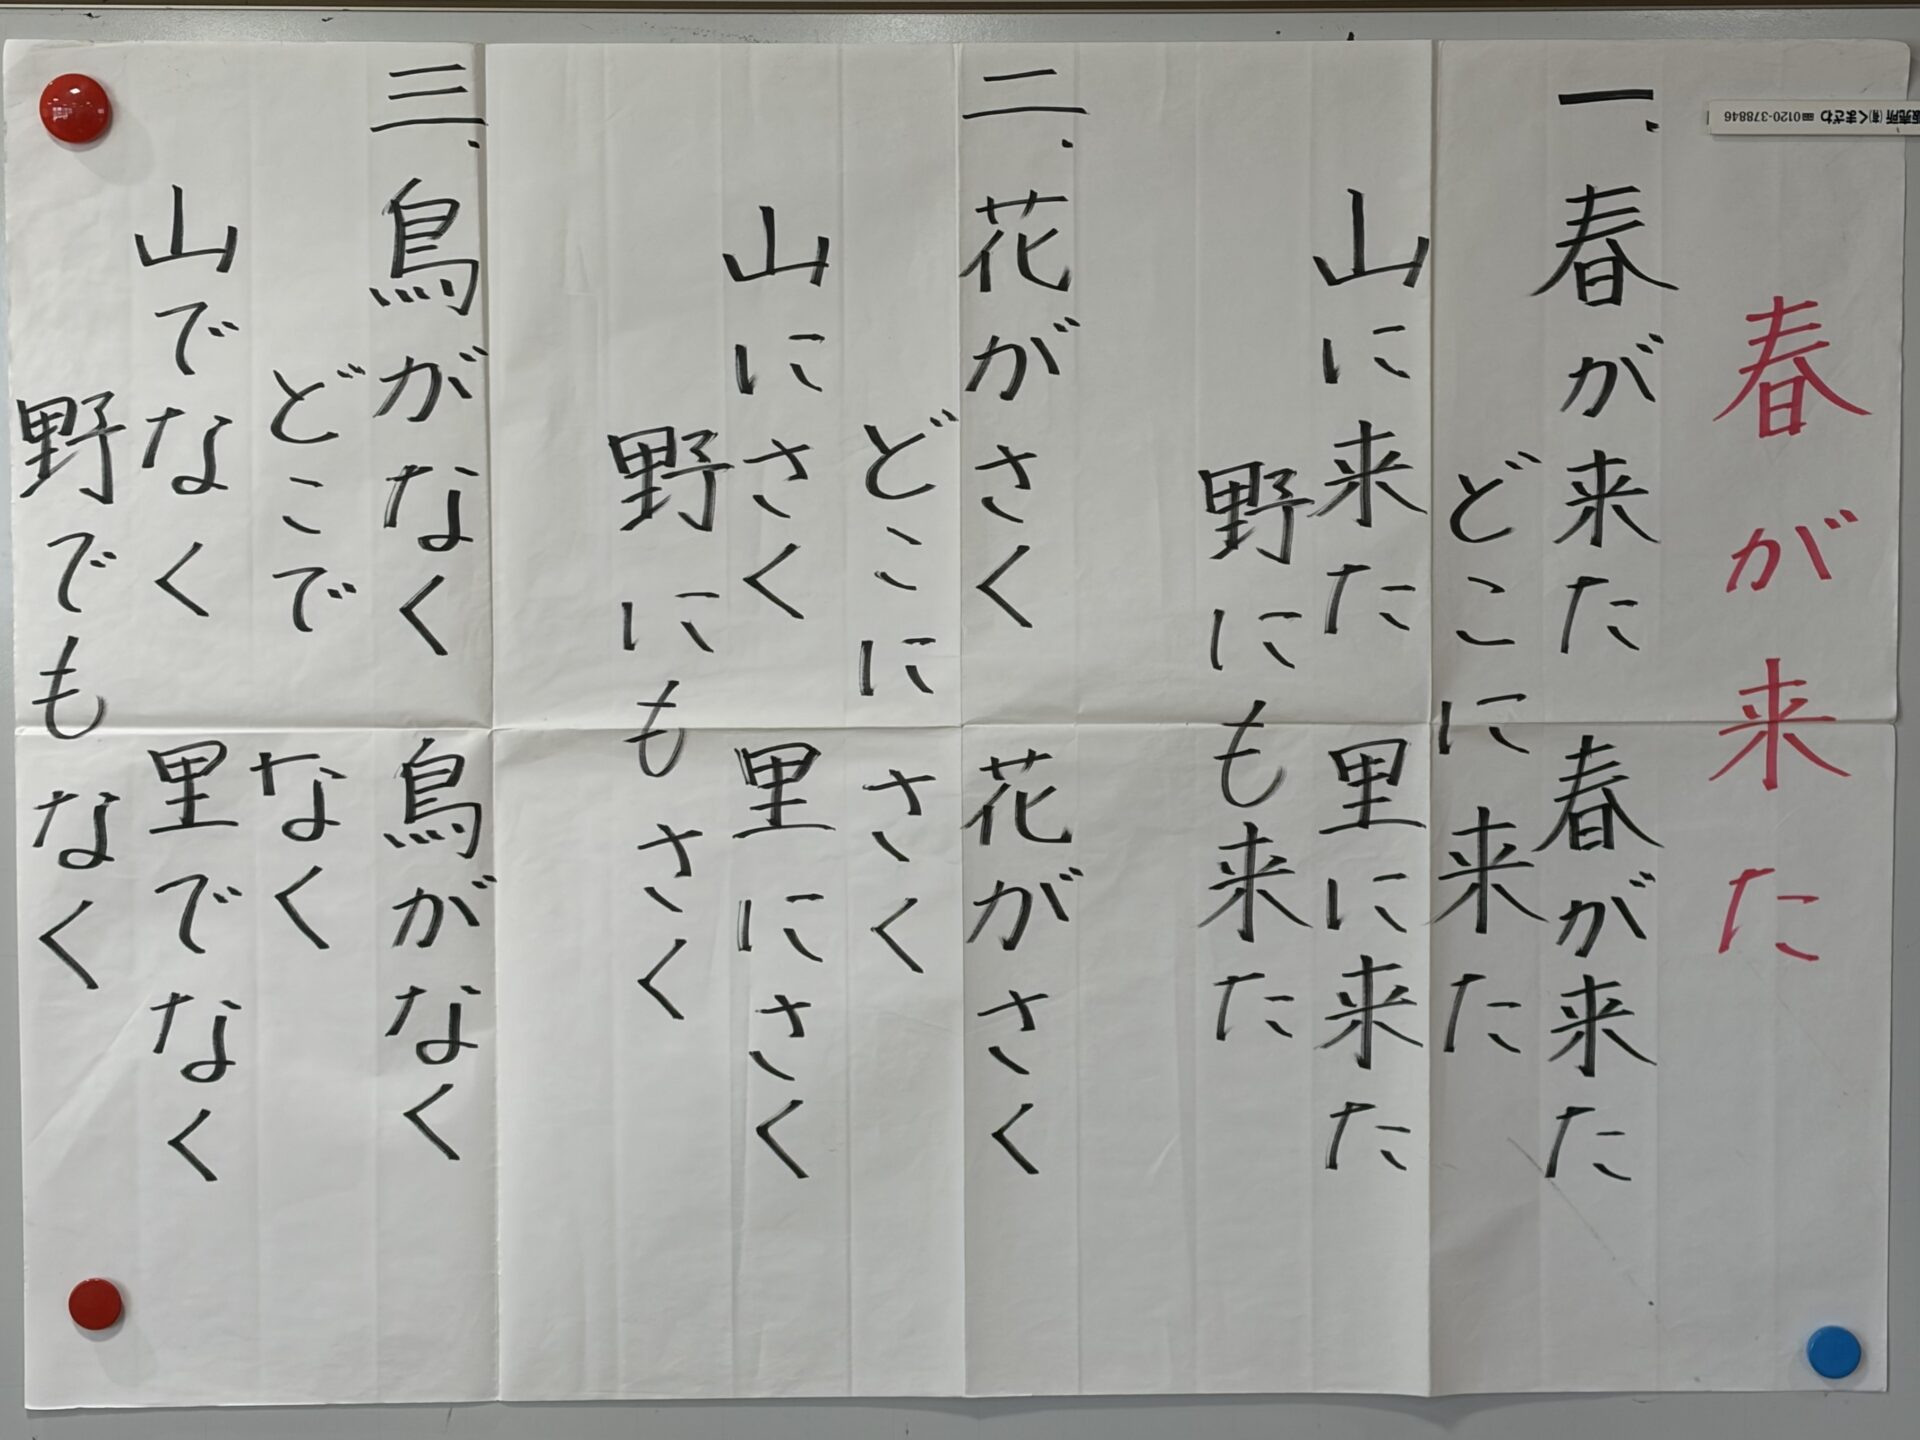 春が来た
一、春が来た 春が来た
どこに 来た
山に来た 里に来た
野にも来た
二、花がさく 花がさく
どこに さく
山にさく 里にさく
野にもさく
三、鳥がなく 鳥がなく
どこで なく
山でなく 里でなく
野でも なく
販売所 ㈲くまざわ 0120-378846